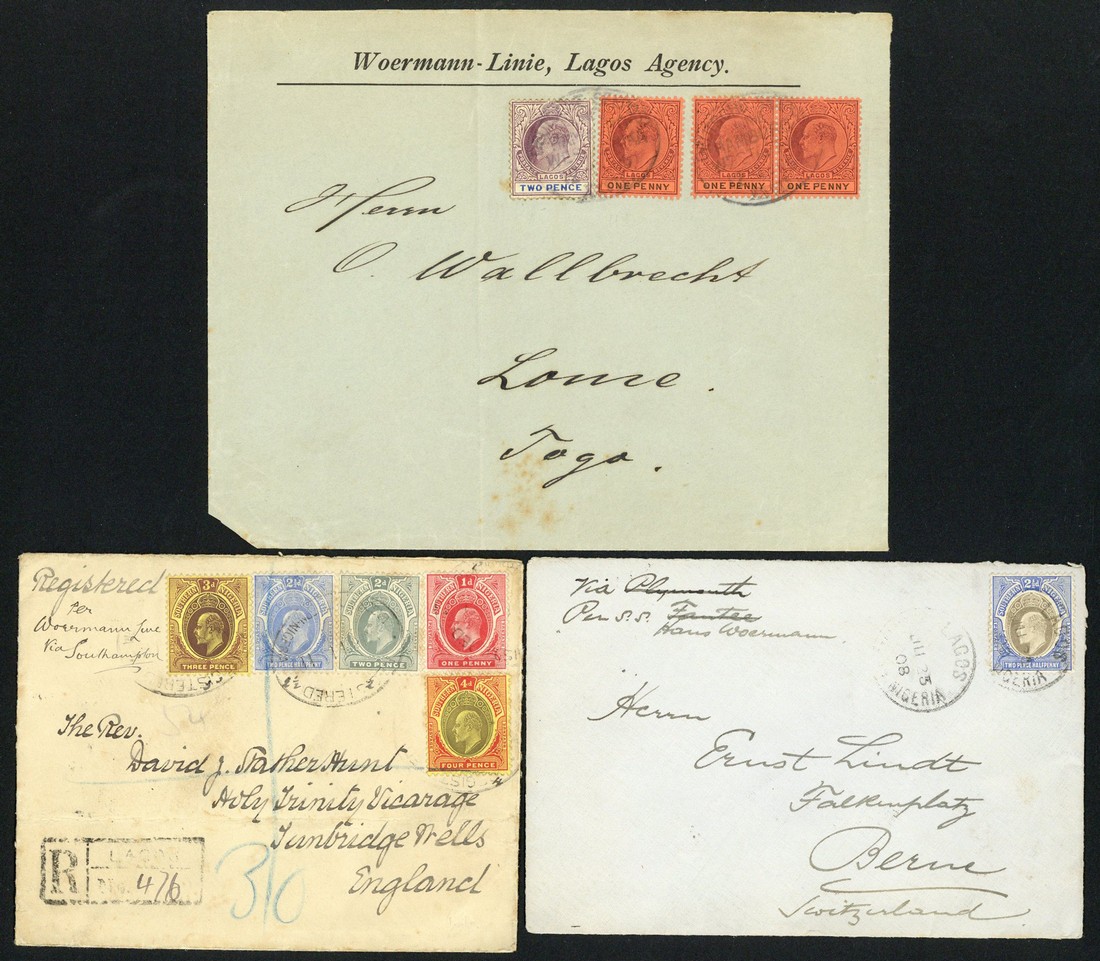 Woermann-Linie, Lagos Agency.
LAGOS
TWO PENCE
LAGOS
ONE PENNY
LAGOS
ONE PENNY
LAGOS
ONE PENNY
Herrn
O. Wallbrecht
Lome.
Togo.
Registered
per
Woermann Line
via
Southampton
3d
SOUTHERN NIGERIA
THREE PENCE
2½d
SOUTHERN NIGERIA
TWO PENCE HALFPENNY
2d
SOUTHERN NIGERIA
TWO PENCE
1d
SOUTHERN NIGERIA
ONE PENNY
4d
SOUTHERN NIGERIA
FOUR PENCE
The Rev.
David J. Stather Hunt
Holy Trinity Vicarage
Tunbridge Wells
England
R
LAGOS
476
Via Plymouth
Per S.S. Fantee
Hans Woermann
2½d
SOUTHERN NIGERIA
TWO PENCE HALFPENNY
LAGOS
JU 25
08
NIGERIA
Herrn
Ernst Lindt
Falkenplatz
Berne
Switzerland